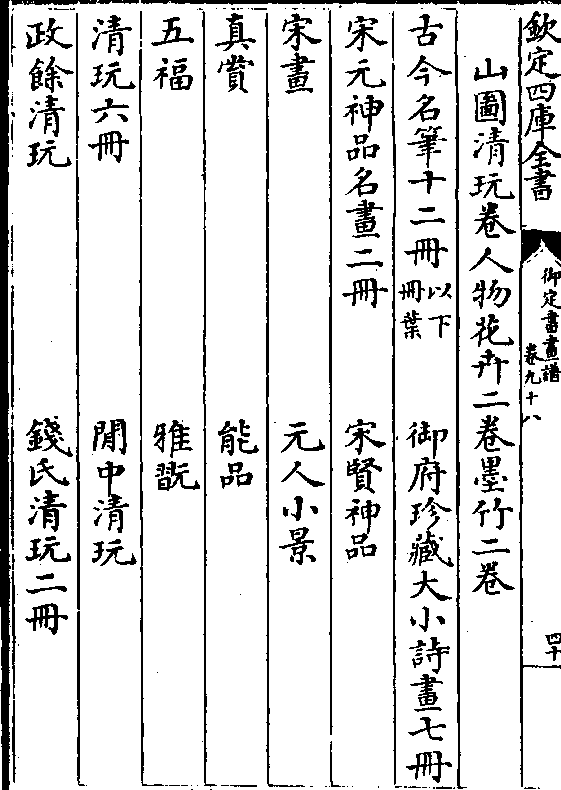 欽定四庫全書
御定書畫譜
卷九十八
四十
山圖清玩卷人物花卉二卷墨竹二卷
古今名筆十二冊以下冊葉
御府珍藏大小詩畫七冊
宋元神品名畫二冊
宋賢神品
宋畫
元人小景
真賞
能品
五福
雅翫
清玩六冊
閒中清玩
政餘清玩
錢氏清玩二冊